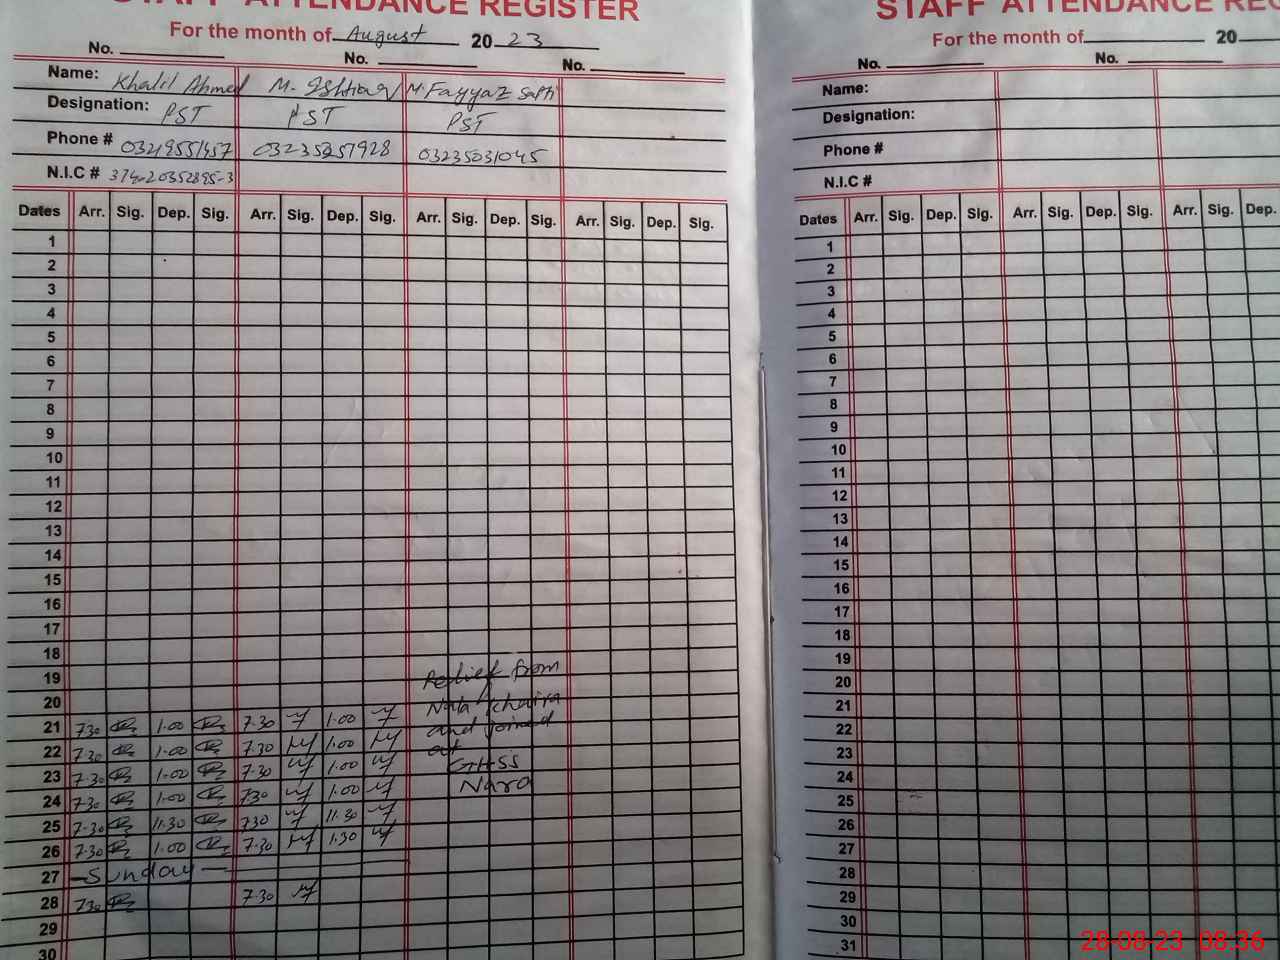 STAFF ATTENDANCE REGISTER
For the month of August 20 23
No. No. No.
Name: Khalil Ahmed M. Ishtiaq M. Fayyaz Satti
Designation: PST PST PST
Phone # 03235031045
N.I.C #
Dates Arr. Sig. Dep. Sig. Arr. Sig. Dep. Sig. Arr. Sig. Dep. Sig. Arr. Sig. Dep. Sig.
1
2
3
4
5
6
7
8
9
10
11
12
13
14
15
16
17
18
19 Relief from
20 Nala khaira
21 730 1.00 7.30 1.00 and joined
22 7.30 1.00 7.30 1.00 at
23 7.30 1.00 7.30 1.00 GHSS
24 7.30 1.00 730 1.00 Nara
25 7.30 11.30 730 11.30
26 7.30 1.00 7.30 1.30
27 Sunday
28 730 7.30
29
30
STAFF ATTENDANCE REG
For the month of 20
No. No.
Name:
Designation:
Phone #
N.I.C #
Dates Arr. Sig. Dep. Sig. Arr. Sig. Dep. Sig. Arr. Sig. Dep.
1
2
3
4
5
6
7
8
9
10
11
12
13
14
15
16
17
18
19
20
21
22
23
24
25
26
27
28
29
30
31
28-08-23 08:36